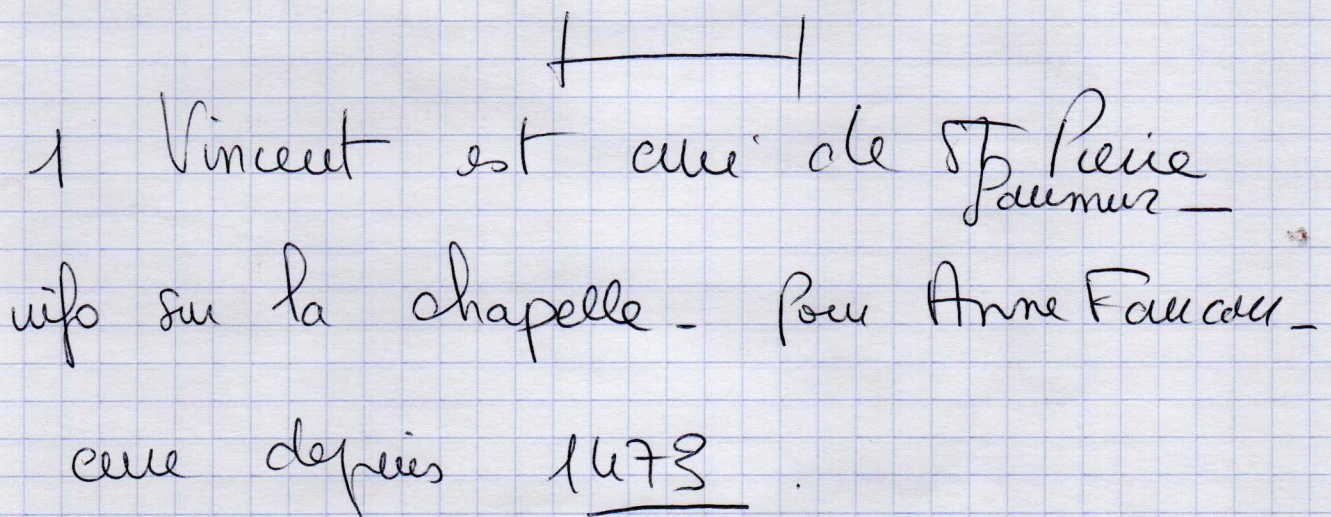 1 Vincent est curé de St Pierre
Saumur_
info sur la chapelle_ pour Anne Faucou_
cure depuis 1473.